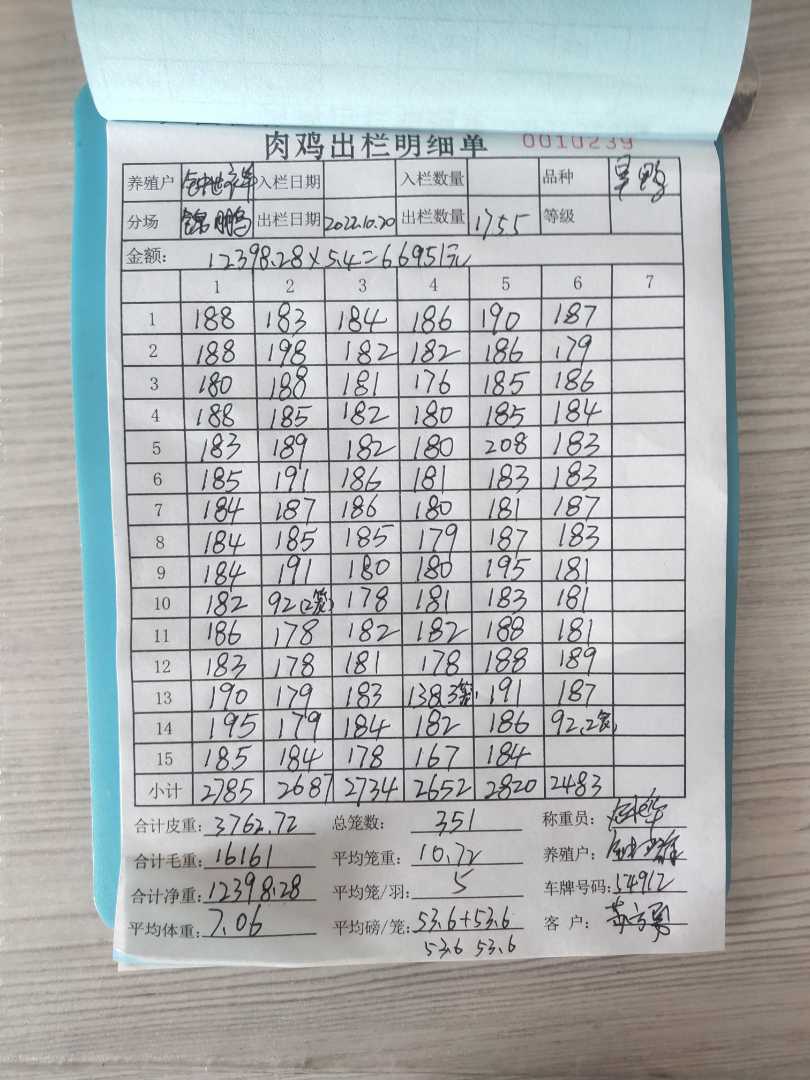 肉鸡出栏明细单 0010239
养殖户 入栏日期 入栏数量 品种
分场 锦鹏 出栏日期 2022.10.20 出栏数量 1755 等级
金额： 12398.28×5.4=66951元
1 2 3 4 5 6 7
1 188 183 184 186 190 187
2 188 198 182 182 186 179
3 180 188 181 176 185 186
4 188 185 182 180 185 184
5 183 189 182 180 208 183
6 185 191 186 181 183 183
7 184 187 186 180 181 187
8 184 185 185 179 187 183
9 184 191 180 180 195 181
10 182 92(2笼) 178 181 183 181
11 186 178 182 182 188 181
12 183 178 181 178 188 189
13 190 179 183 138 3笼 191 187
14 195 179 184 182 186 92 2笼
15 185 184 178 167 184
小计 2785 2687 2734 2652 2820 2483
合计皮重: 3762.72 总笼数: 351 称重员:
合计毛重: 16161 平均笼重: 10.72 养殖户:
合计净重: 12398.28 平均笼/羽: 5 车牌号码: 54912
平均体重: 7.06 平均磅/笼: 53.6+53.6 客 户:
53.6 53.6